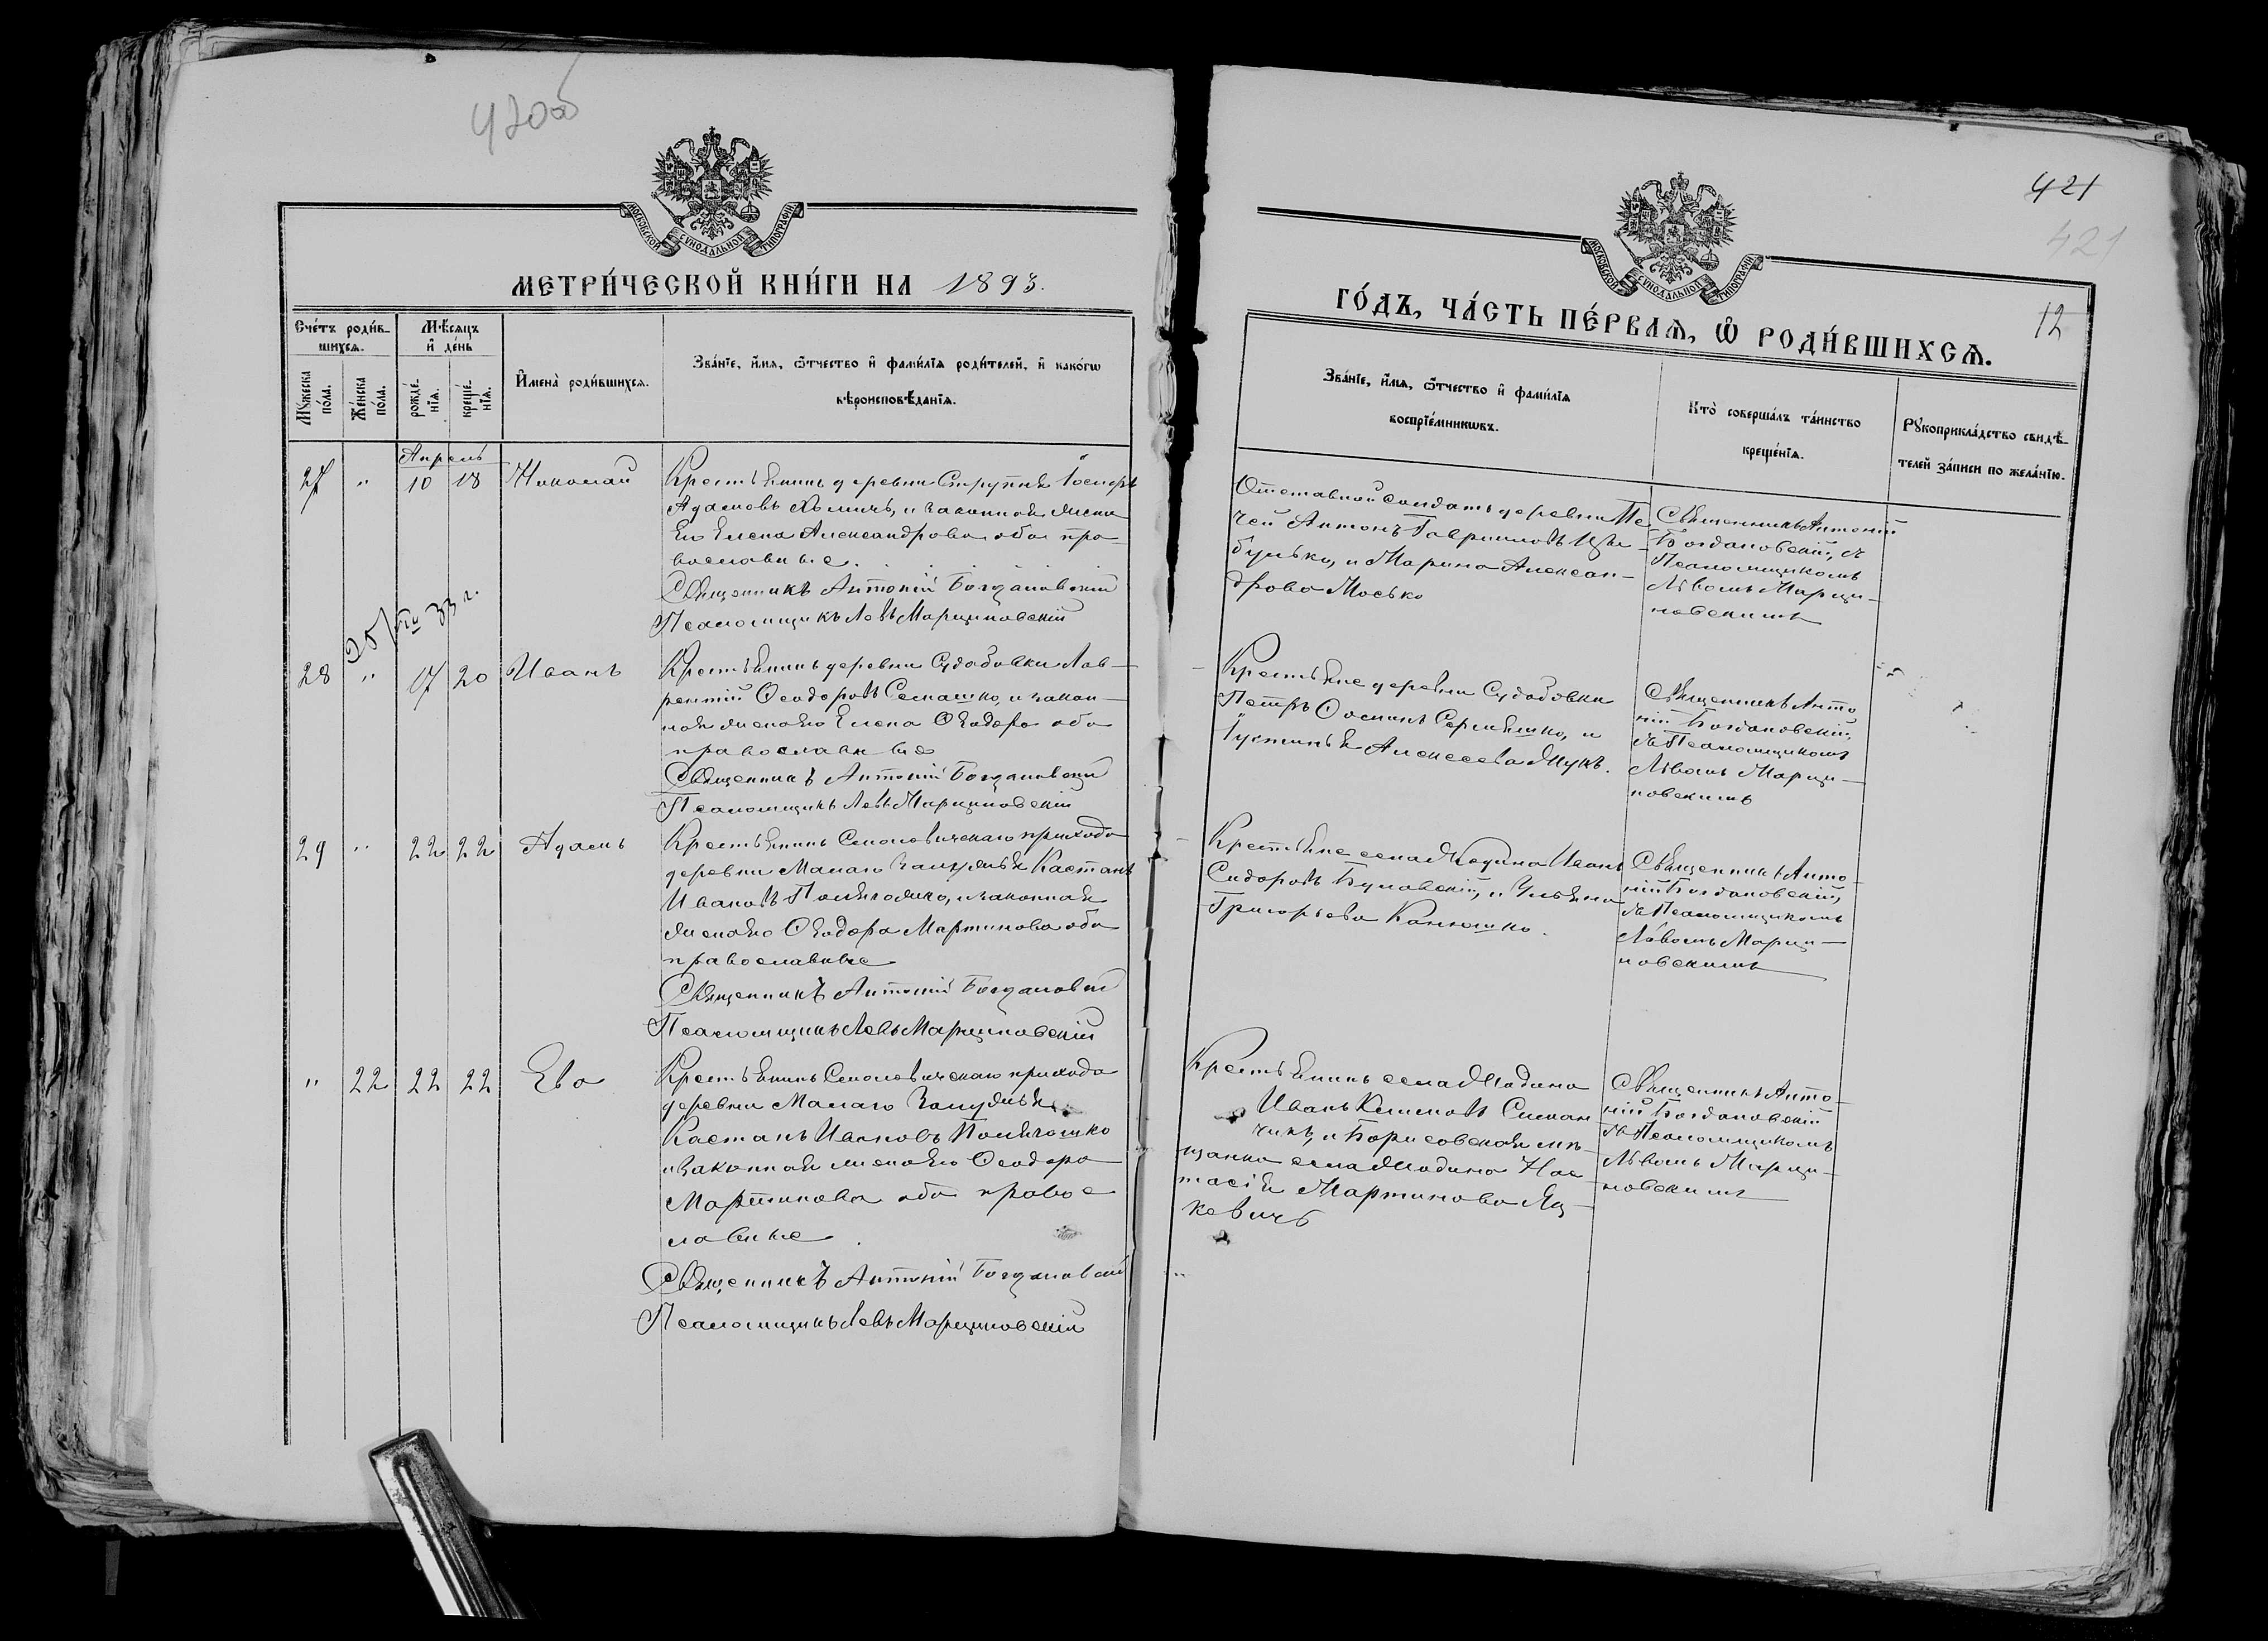 420об
МОСКОВСКОЙ СУНОДАЛЬНОЙ ТИПОГРАФІИ
МЕТРИ́ЧЕСКОЙ КНИ́ГИ НА 1893.
Сче́тъ роди́в-
шихсѧ.
Мѣ́сѧцъ
и҆ де́нь
И҆мена̀ роди́вшихсѧ.
Зва́нїе, и҆́мѧ, ѻ҆́тчество и҆ фами́лїѧ роди́телей, и҆ како́гѡ
вѣроисповѣ́данїѧ.
Мꙋ́жеска
по́ла.
Же́нска
по́ла.
рожде́-
нїѧ.
креще́-
нїѧ.
Апрель
27 " 10 18 Николай
Крестьянинъ деревни Іосифъ
Адамовъ и законная жена
его Елена Александрова оба пра-
вославные.
Священникъ Антоній Богдановскій
Псаломщикъ Левъ Марциновскій
28 " 17 20 Иванъ
Крестьянинъ деревни Судобовки Лав-
рентій Ѳеодоровъ Семашко, и закон-
ная жена его Елена Ѳеодора оба
православные
Священникъ Антоній Богдановскій
Псаломщикъ Левъ Марциновскій
29 " 22 22 Адамъ
Крестьянинъ прихода
деревни Малаго Кастанъ
Ивановъ и законная
жена его Ѳеодора Мартинова оба
православные
Священникъ Антоній Богдановскій
Псаломщикъ Левъ Марциновскій
" 22 22 22 Ева
Крестьянинъ прихода
деревни Малаго
Кастанъ Ивановъ
и законная жена его Ѳеодора
Мартинова оба правос
лавные
Священникъ Антоній Богдановскій
Псаломщикъ Левъ Марциновскій
421
421
12
МОСКОВСКОЙ СУНОДАЛЬНОЙ ТИПОГРАФІИ
ГО́ДЪ, ЧА́СТЬ ПЕ́РВАѦ, Ѡ҆ РОДИ́ВШИХСѦ.
Зва́нїе, и҆́мѧ, ѻ҆́тчество и҆ фами́лїѧ
воспрїе́мникѡвъ.
Кто̀ соверша́лъ та́инство
креще́нїѧ.
Рꙋкоприкла́дство свидѣ́-
телей за́писи по жела́нїю.
Отставной солдатъ деревни Пе
чей Антонъ Гавриловъ Цы-
булько, и Марина Алексан-
дрова Мосько
Священникъ Антоній
Богдановскій, съ
Псаломщикомъ
Львомъ Марци-
новскимъ
Крестьяне деревни Судобовки
Петръ Осиповъ и
Іустинья Алексеева Жукъ.
Священникъ Анто
ній Богдановскій,
съ Псаломщикомъ
Львомъ Марци-
новскимъ
Крестьяне села Жодина Иванъ
Сидоровъ и Ульяна
Григорьева Канюшко.
Священникъ Анто-
ній Богдановскій,
съ Псаломщикомъ
Львомъ Марци-
новскимъ
Крестьянинъ села Жодина
Иванъ Климовъ Симан
чикъ, и Борисовская мѣ-
щанка села Жодина Нас-
тасія Мартинова Яц-
кевичъ
Священникъ Анто-
ній Богдановскій
съ Псаломщикомъ
Львомъ Марци-
новскимъ